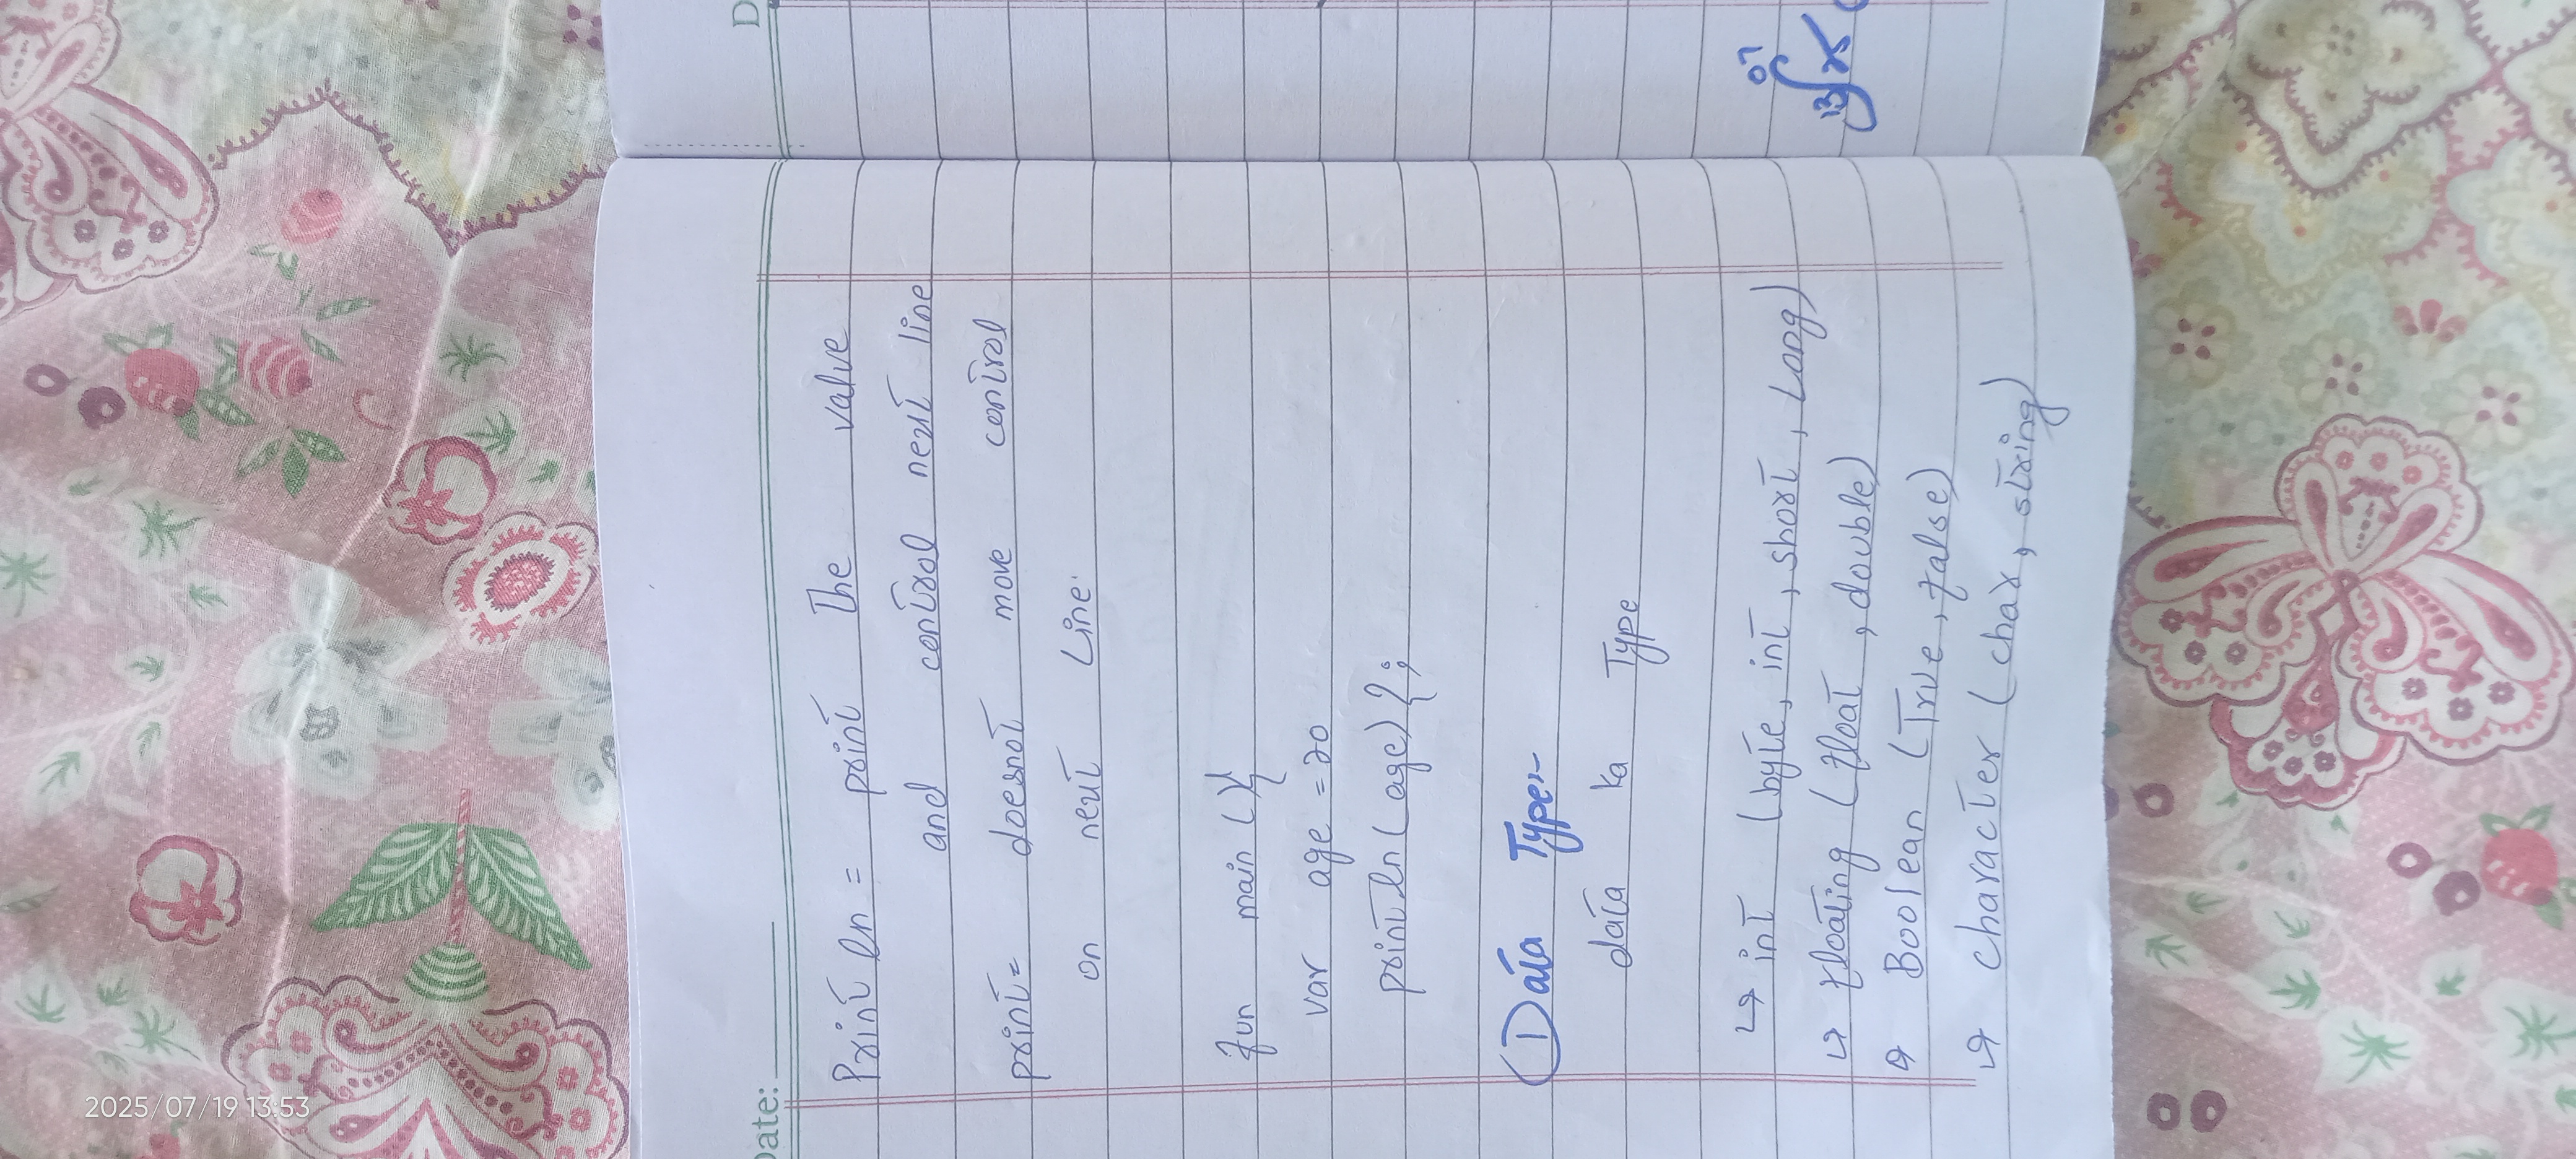 2025/07/19 13:53
Date:
Println = print the value
and control next line
print= doesnot move control
on next Line.
fun main (){
var age = 20
println(age)};
Data Type:-
data ka Type
↳ int (byte, int, short, Long)
↳ floating (float, double)
↳ Boolean (True, false)
↳ character (char, string)
D
07
13
25